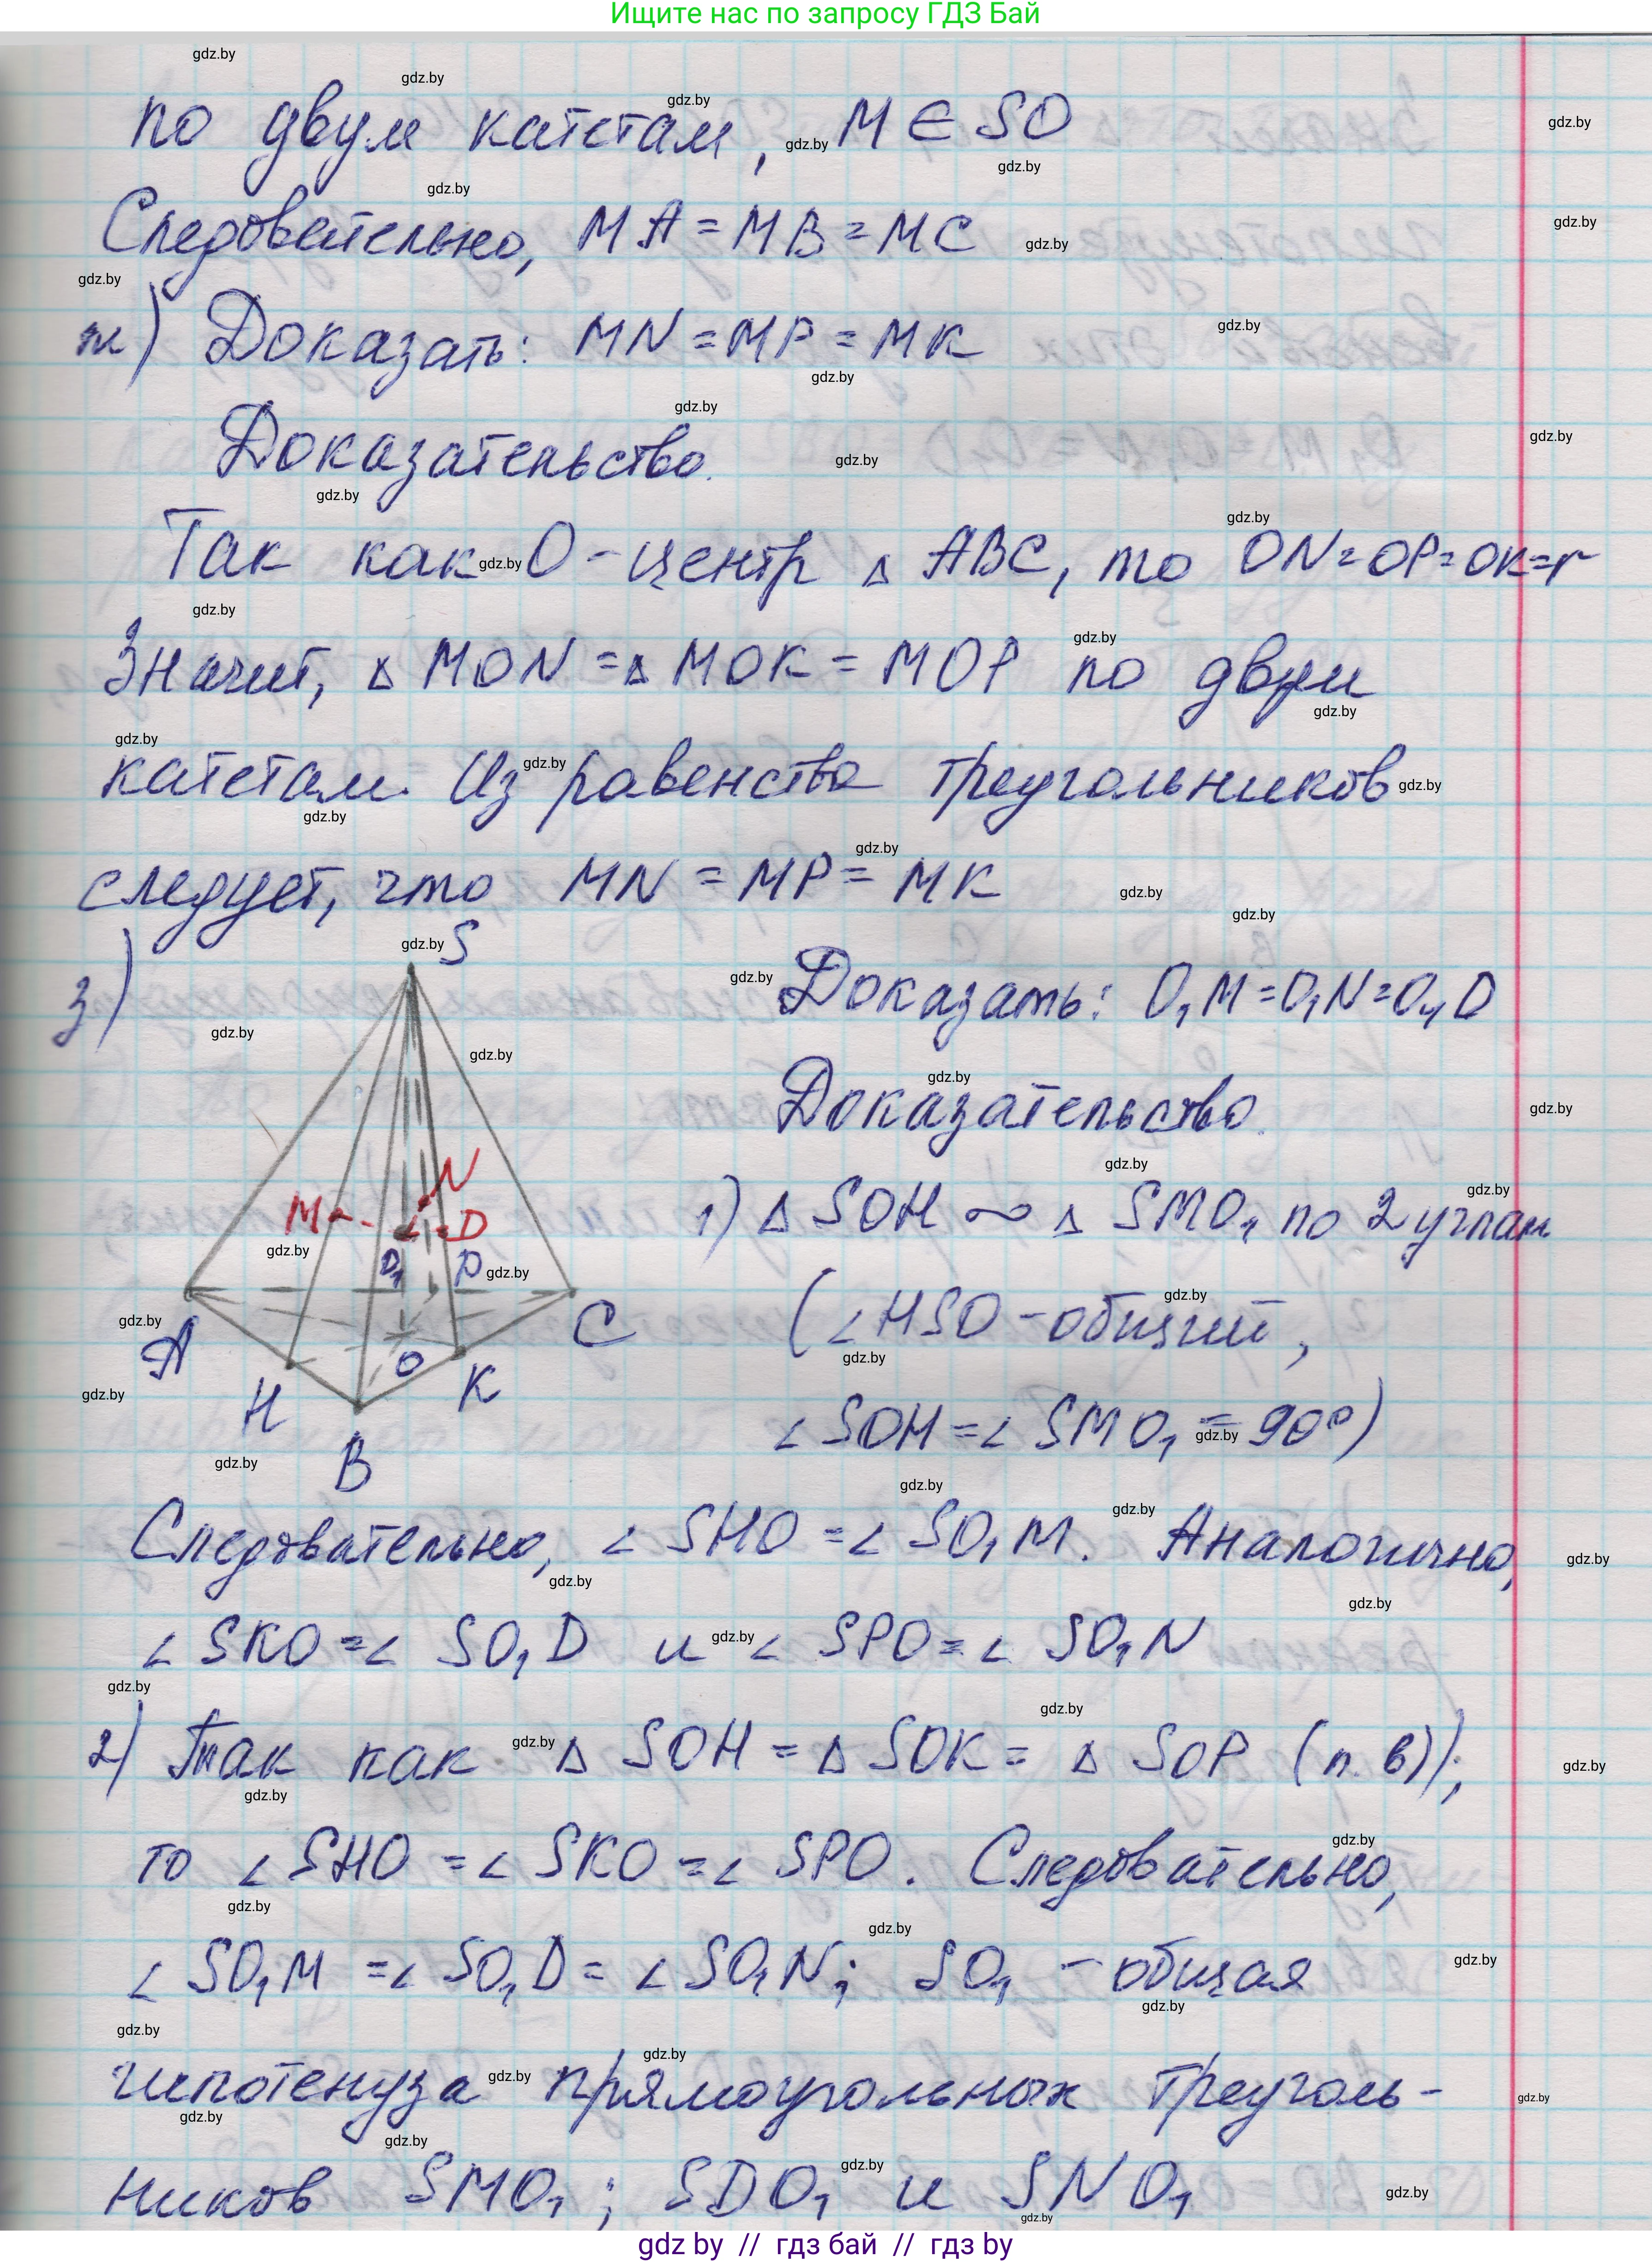 Ищите нас по запросу ГДЗ Бай
по двум катетам, M ∈ SO
Следовательно, MA = MB = MC
ж) Доказать: MN = MP = MK
Доказательство.
Так как O - центр △ ABC, то ON = OP = OK = r
Значит, △ MON = △ MOK = MOP по двум
катетам. Из равенства треугольников
следует, что MN = MP = MK
з)
S
Доказать: O₁M = O₁N = O₁D
Доказательство.
N
M
D
1) △ SOH ∞ △ SMO₁ по 2 углам
O₁
P
(∠HSO - общий,
A
C
O
H
K
∠ SOH = ∠ SMO₁ = 90°)
B
Следовательно, ∠ SHO = ∠ SO₁M. Аналогично,
∠ SKO = ∠ SO₁D и ∠ SPO = ∠ SO₁N
2) Так как △ SOH = △ SOK = △ SOP (п. в)),
то ∠ SHO = ∠ SKO = ∠ SPO. Следовательно,
∠ SO₁M = ∠ SO₁D = ∠ SO₁N; SO₁ - общая
гипотенуза прямоугольных треуголь-
ников SMO₁; SDO₁ и SNO₁
gdz by // гдз бай // гдз by